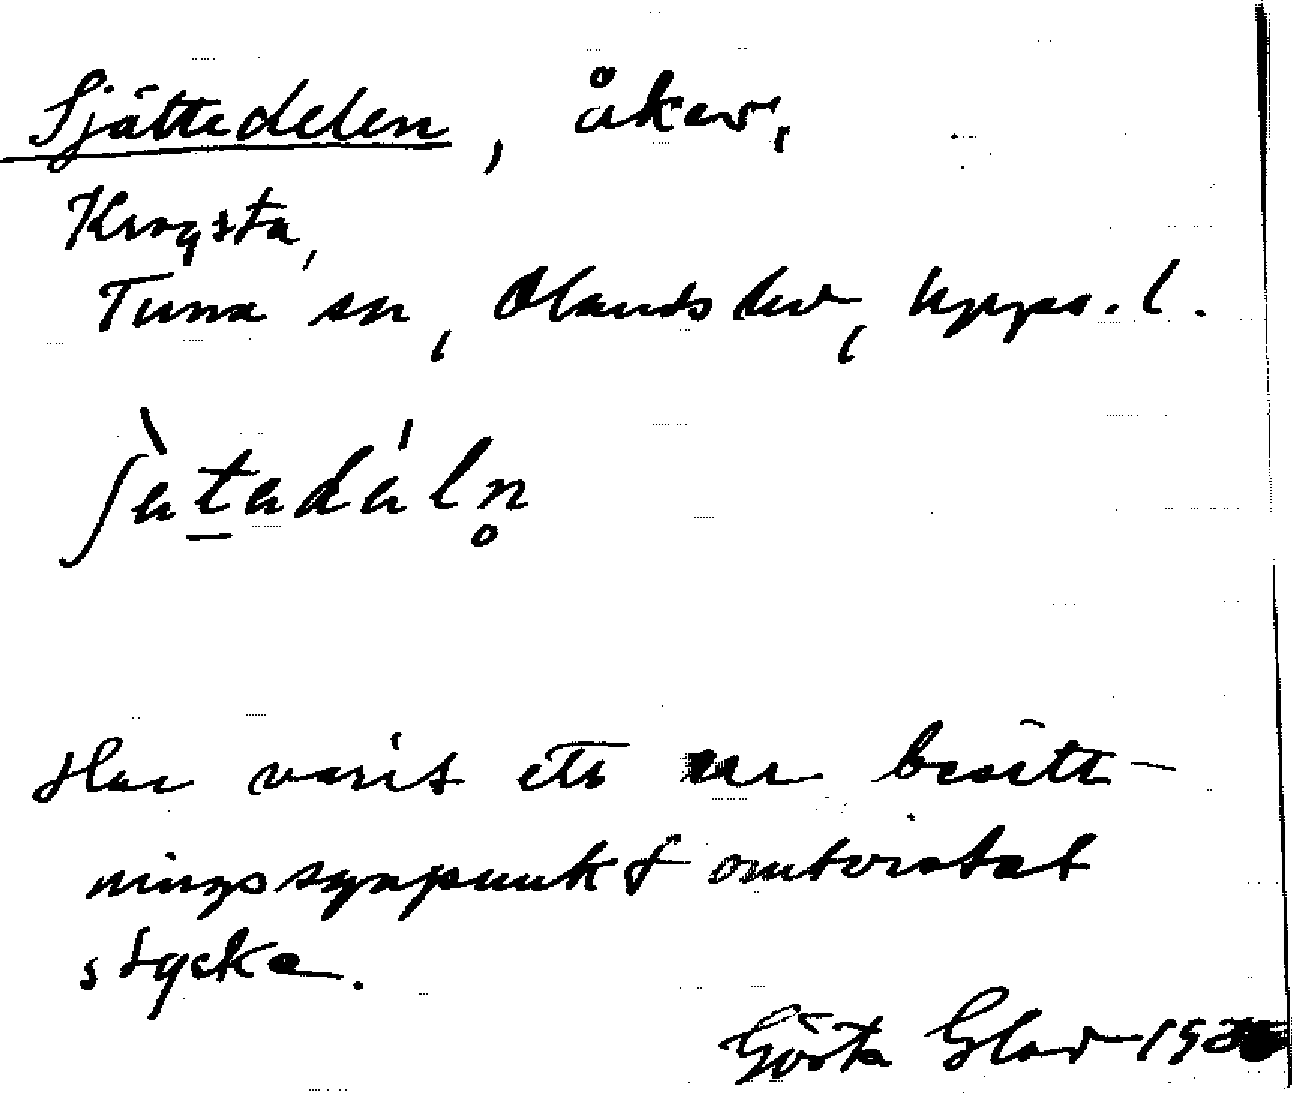 Sjättedelen, åker,
Krogsta,
Tuna sn, Olands hd, Upps. l.
ʃètedéln̥
Har varit ett ur besitt-
ningssynpunkt omtvistat
stycke.
Gösta Glad